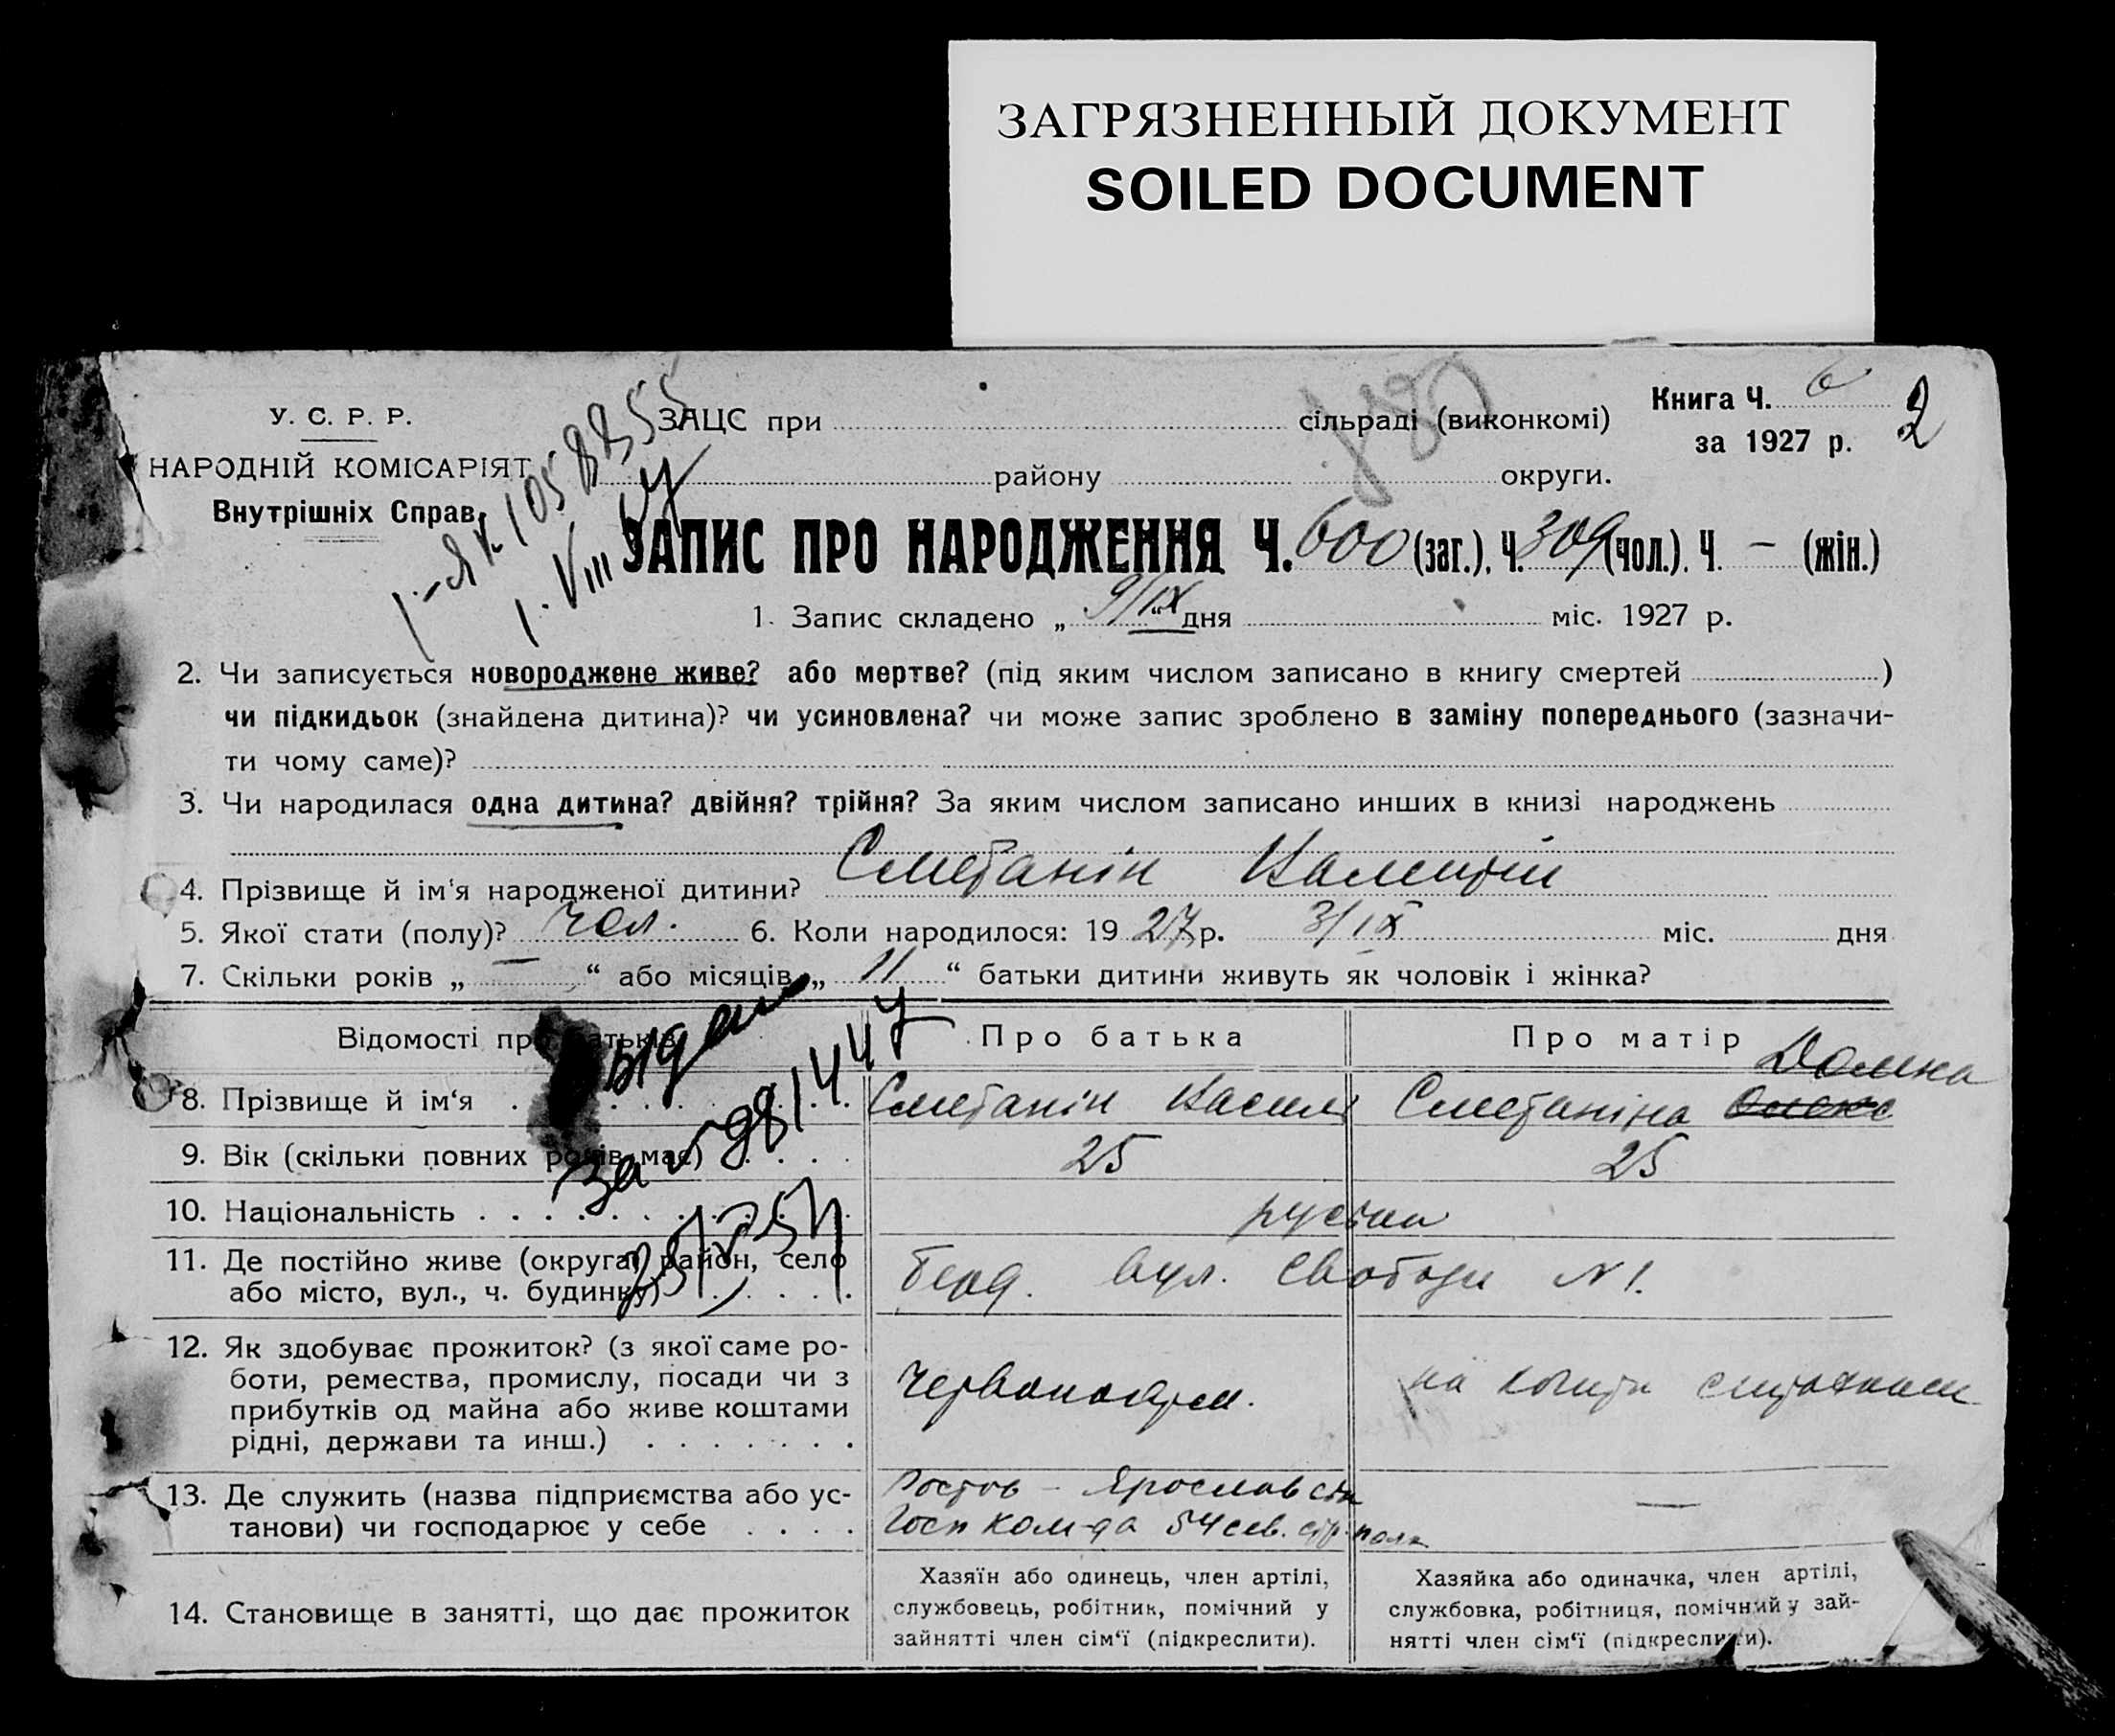 ЗАГРЯЗНЕННЫЙ ДОКУМЕНТ
SOILED DOCUMENT
У. С. Р. Р.
НАРОДНІЙ КОМІСАРІЯТ
Внутрішніх Справ.
ЗАЦС при сільраді (виконкомі)
району округи.
Книга Ч. 6
за 1927 р.
2
180
1. VIII
ЗАПИС ПРО НАРОДЖЕННЯ Ч. 600 (заг.), Ч. 309 (чол.). Ч. – (жін.)
1. Запис складено „ 9/IX “ дня міс. 1927 р.
2. Чи записується новороджене живе? або мертве? (під яким числом записано в книгу смертей )
чи підкидьок (знайдена дитина)? чи усиновлена? чи може запис зроблено в заміну попереднього (зазначи-
ти чому саме)?
3. Чи народилася одна дитина? двійня? трійня? За яким числом записано инших в книзі народжень
4. Прізвище й ім‘я народженої дитини? Сметанін
5. Якої стати (полу)? чол. 6. Коли народилося: 19 27 р. 3/IX міс. дня
7. Скільки років „ — “ або місяців „ 11 “ батьки дитини живуть як чоловік і жінка?
Відомості про батьків
Про батька
Про матір
8. Прізвище й ім‘я
Сметанін Василь
Сметаніна Домна
9. Вік (скільки повних років має)
25
25
10. Національність
руські
11. Де постійно живе (округа, район, село
або місто, вул., ч. будинку)
Берд. вул. Свободи № 1.
12. Як здобуває прожиток? (з якої саме ро-
боти, ремества, промислу, посади чи з
прибутків од майна або живе коштами
рідні, держави та инш.)
Червоноарм.
на кошти
13. Де служить (назва підприємства або ус-
танови) чи господарює у себе
Ростов - Ярославск
Госп ком-да 54 стр. полк
—
14. Становище в занятті, що дає прожиток
Хазяїн або одинець, член артілі,
службовець, робітник, помічний у
зайнятті член сім‘ї (підкреслити).
Хазяйка або одиначка, член артілі,
службовка, робітниця, помічний у зай-
нятті член сім‘ї (підкреслити).